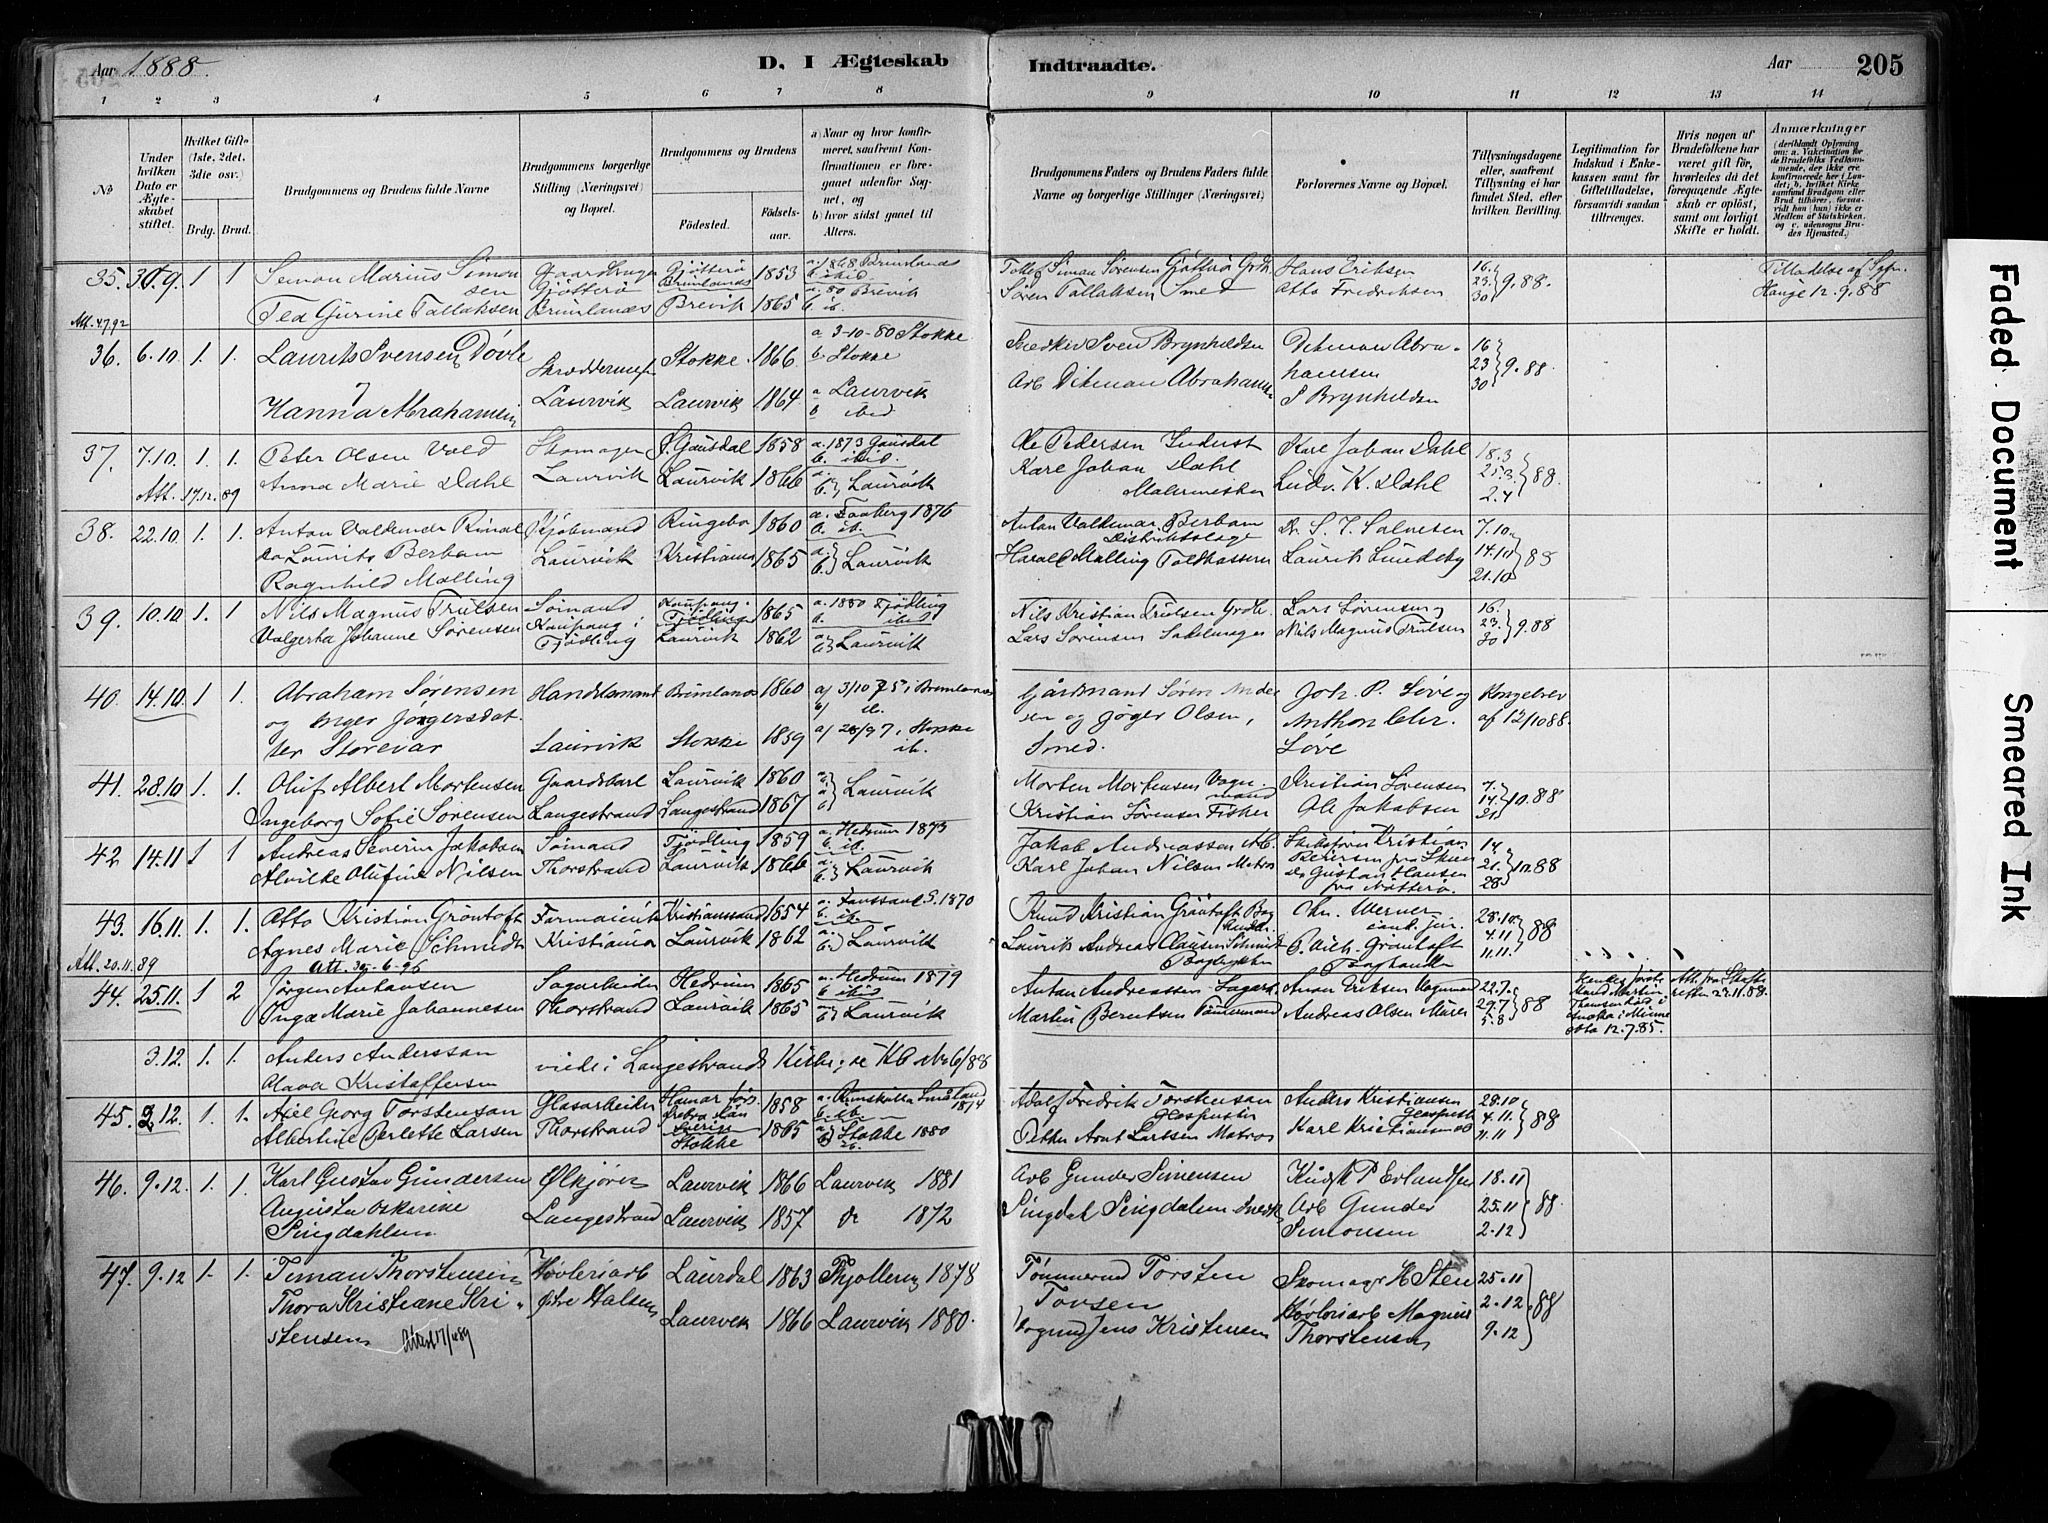 Aar 1888.
D. I Ægteskab
Indtraadte.
Aar
205
1 2 3 4 5 6 7 8 9 10 11 12 13 14
No
Under hvilken Dato er Ægteskabet stiftet.
Hvilket Gifte (1ste, 2det, 3die osv.)
Brdg. Brud.
Brudgommens og Brudens fulde Navne
Brudgommens borgerlige Stilling (Næringsvei) og Bopæl.
Brudgommens og Brudens
Fødested.
Fødselsaar.
a) Naar og hvor konfirmeret, saafremt Konfirmationen er foregaaet udenfor Sognet, og
b) hvor sidst gaaet til Alters.
Brudgommens Faders og Brudens Faders fulde Navne og borgerlige Stillinger (Næringsvei)
Forlovernes Navne og Bopæl.
Tillysningsdagene eller, saafremt Tillysning ei har fundet Sted, efter hvilken Bevilling.
Legitimation for Indskud i Enkekassen samt for Giftetilladelse, forsaavidt saadan tiltrænges.
Hvis nogen af Brudefolkene har været gift før, hvorledes da det foregaaende Ægteskab er opløst, samt om lovligt Skifte er holdt.
Anmærkninger
(deriblandt Oplysning om: a. Vakcination for de Brudefolks Vedkommende, der ikke ere konfirmerede her i Landet; b. hvilket Kirkesamfund Brudgom eller Brud tilhører, forsaavidt han (hun) ikke er Medlem af Statskirken, og c. udensogns Brudes Hjemsted.)
35. 30.9. 1 1 Simon Marius Simonsen Gjøtterø Brunlanes 1853 a. 1868 Brunlanes b. ibid
Simon Sørensen Gjøtterø Hans Eriksen 16. 23. 30 9.88. Tilladelse af Sgpr.
Tea Gurine Tallaksen Brunlanes Brevik 1865 a. 80 Brevik b. ib.
Søren Tallaksen Smed Otto Fredriksen Hauge 12.9.88
Att. 4.7.92
36. 6.10. 1. 1. Laurits Svensen Døvle Skræddermester Stokke 1866 a. 3-10-80 Stokke b. Stokke
Snedker Sven Brynhildsen Ditman Abrahamsen 16 23 30 9.88
Hanna Abrahamsen Laurvik Laurvik 1864. a Laurvik b ibid
Arb Ditman Abrahamsen S Brynhildsen
37. 7.10. 1. 1. Peter Olsen Vold Skomager Ø. Gausdal 1858 a. 1873 Gausdal b. ibid.
Ole Pedersen Karl Johan Dahl 18.3 25.3. 2.4 88.
Att. 17.12.89 Anna Marie Dahl Laurvik Laurvik 1866 a. b. Laurvik
Karl Johan Dahl Malermester Ludv. K. Dahl
38. 22.10. 1. 1. Anton Valdemar Laurits Berbom Kjøbmand Ringebo 1860 a. Faaberg 1876 b. ib.
Anton Valdemar Berbom Distriktslæge Dr. S. T. Salvesen 7.10 14.10 21.10 88
Ragnhild Malling Laurvik Kristiania 1865 a. b. Laurvik
Harald Malling Toldkasserer Laurits Lundeby
39. 10.10. 1. 1 Nils Magnus Trulsen Sømand Kaupang i Tjødling 1865 a. 1880 Tjødling b. ibid
Nils Kristian Trulsen Lars Sørensen 16. 23. 30 9.88
Valgerha Johanne Sørensen Laurvik 1862 a. b. Laurvik
Lars Sørensen Nils Magnus Trulsen
40. 14.10. 1 1. Abraham Sørensen Handelsmand Brunlanes 1860 a/ 3/10 75 i Brunlanes b/ ib.
Gårdmand Søren Andersen og Jøger Olsen, Smed. Joh. P. Løve og Anthon Chr. Løve Kongebrev af 12/10 88.
og Inger Jørgersdatter Storevar Laurvik Stokke 1859 i Stokke ib.
41. 28.10 1. 1. Oluf Albert Mortensen Gaardskarl Laurvik 1860 a. b. Laurvik
Morten Mortensen Vognmand Kristian Sørensen 7. 14. 21 10.88
Ingeborg Sofie Sørensen Langestrand Langestrand 1867
Kristian Sørensen Fisker Ole Jakobsen
42 14.11 1 1 Andreas Severin Jakobsen Sømand Tjødling 1859 a. Hedrum 1873 b. ib.
Jakob Andreassen Kristian 14. 21. 28 10.88
Alvilde Olufine Nilsen Thorstrand Laurvik 1866 a. b. Laurvik
Karl Johan Nilsen Matros Gustav Hansen fra Nøtterø.
43. 16.11. 1. 1. Otto Kristian Grøntoft Kristianssand 1854 1870 b. ib.
Knud Kristian Grøntoft Chr. Werner jun. 28.10 4.11 11.11 88
Agnes Marie Schmidt Kristiania Laurvik 1862 a. b. Laurvik
Laurits Andreas Clausen Schmidt Grøntoft
Att. 20.11.89 Att. 30-6-96
44. 25.11. 1 2 Jørgen Antonsen Sagarbeider Hedrum 1865 a. Hedrum 1879 b. ibid
Anton Andreassen Anton Eriksen Vognmand 22.7. 29.7 5.8 88
Inga Marie Johannesen Thorstrand Laurvik 1865 a. b. Laurvik
Martin Berntsen Tømmermand Andreas Olsen Murer
12.7.85. Att. fra Skifteretten 23.11.88.
3.12. 1. 1. Anders Andersson Olava Kristoffersen viede i Langestrands Kirke, se KB No 6/88
45. 2.12. 1. 1. Axel Georg Torstenson Glasarbeider 1858 Småland 1874 b. ib.
Adolf Fredrik Torstenson Glaspuster Anders Kristiansen Glaspuster 28.10 4.11. 11.11 88
Albertine Berlette Larsen Thorstrand Stokke 1865 a. b. Stokke 1880
Petter Arnt Larsen Matros Karl Kristiansen
46. 9.12. 1. 1. Karl Gustav Gundersen Ølkjører Laurvik 1866 Laurvik 1881
Arb Gunder Simensen Knud P Erlandsen 18.11 25.11 2.12 88.
Augusta Oskarine Singdahlsen Langestrand Laurvik 1857 do 1872
Singdal Singdalsen Arb Gunder Simonsen
47. 9.12 1. 1. Timan Thorstensen Høvleriarb Laurdal 1863 Thjølling 1878
Tømmermd Torsten Torsen Skomagr H Sten 25.11 2.12 9.12 88
Thora Kristiane Kristensen Østre Halsen Laurvik 1866 Laurvik 1880.
Vognmd Jens Kristensen Høvleriarb Magnus Thorstensen
Faded Document
Smeared Ink